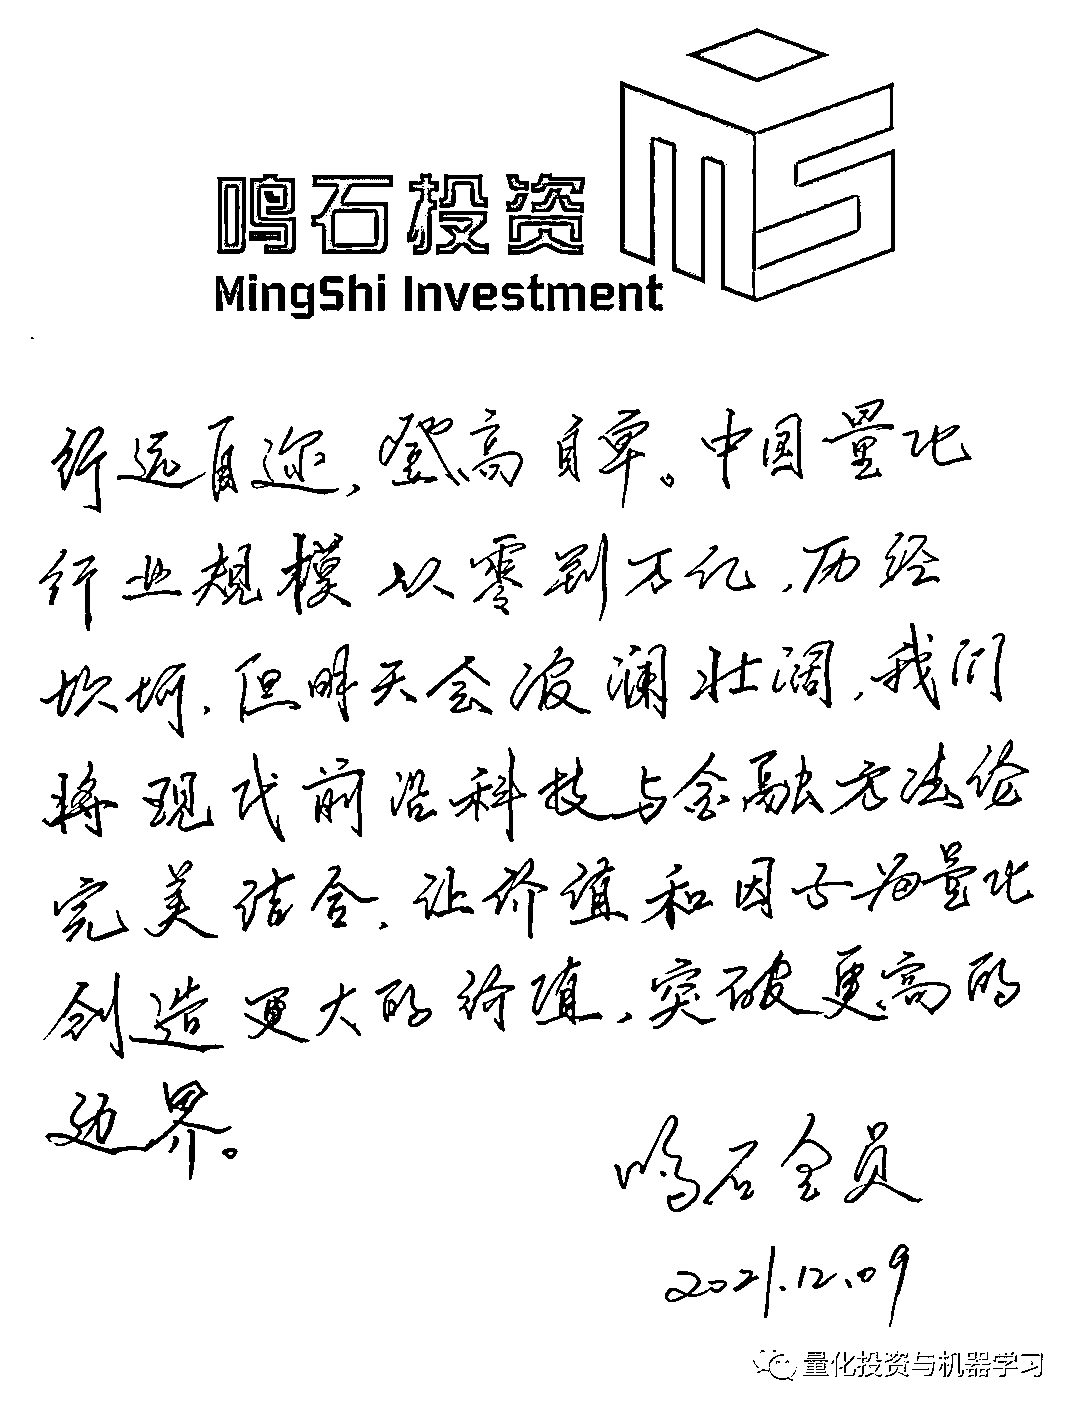 鸣石投资
MingShi Investment
MS
行远自迩，登高自卑。中国量化
行业规模从零到万亿，历经
坎坷，但明天会波澜壮阔，我们
将现代前沿科技与金融方法论
完美结合，让价值和因子为量化
创造更大的价值，突破更高的
边界。
鸣石全员
2021.12.09
量化投资与机器学习